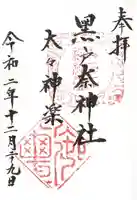 奉拝
黒戸奈神社
太々神楽
令和二年十二月二九日